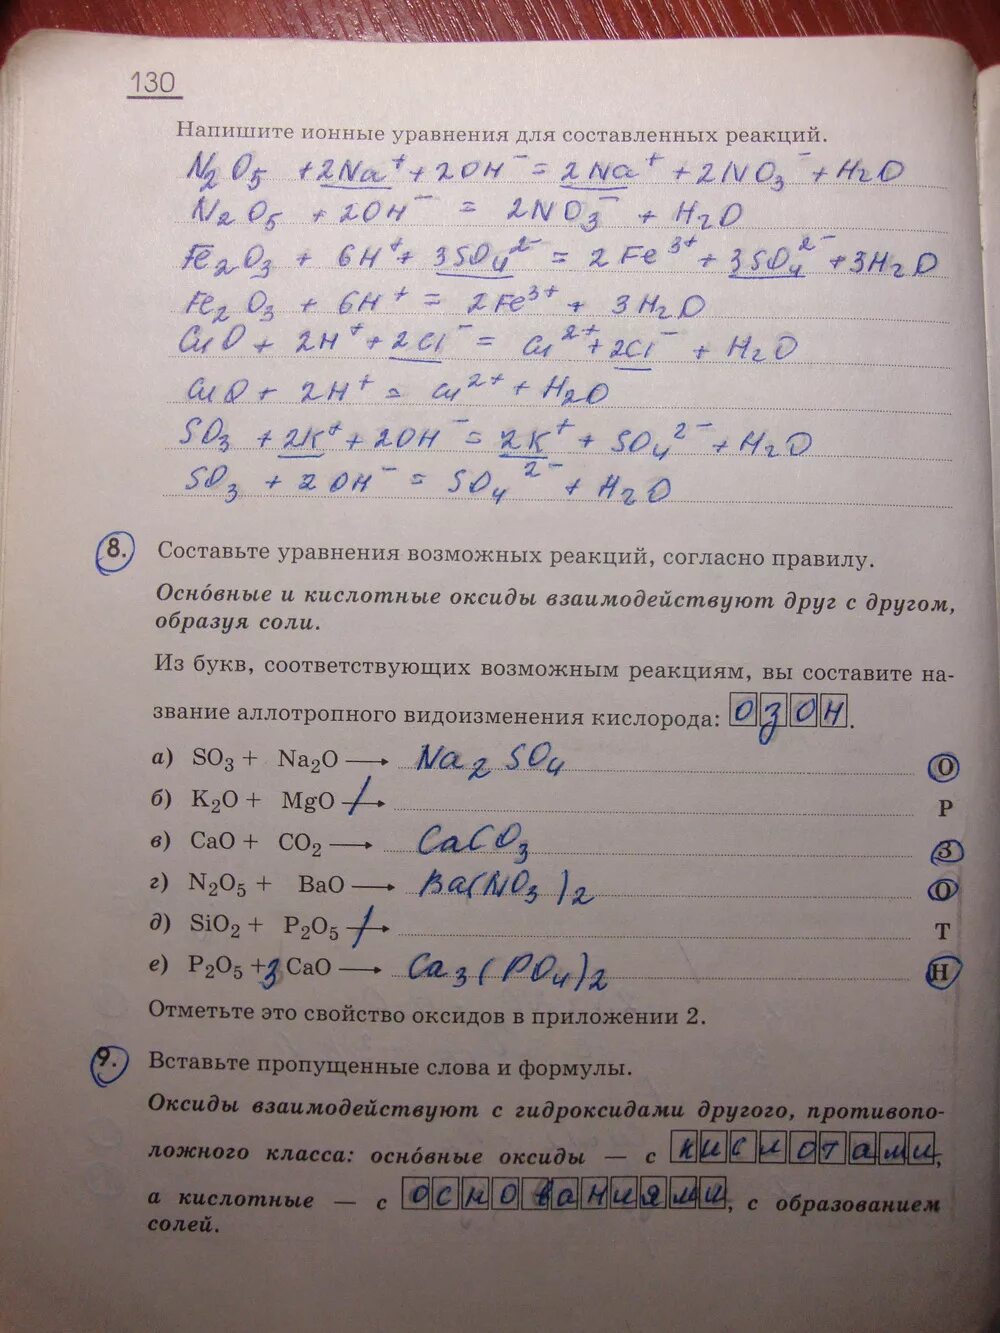 130
Напишите ионные уравнения для составленных реакций.
N₂O₅ + 2Na⁺ + 2OH⁻ = 2Na⁺ + 2NO₃⁻ + H₂O
N₂O₅ + 2OH⁻ = 2NO₃⁻ + H₂O
Fe₂O₃ + 6H⁺ + 3SO₄²⁻ = 2Fe³⁺ + 3SO₄²⁻ + 3H₂O
Fe₂O₃ + 6H⁺ = 2Fe³⁺ + 3H₂O
CuO + 2H⁺ + 2Cl⁻ = Cu²⁺ + 2Cl⁻ + H₂O
CuO + 2H⁺ = Cu²⁺ + H₂O
SO₃ + 2K⁺ + 2OH⁻ = 2K⁺ + SO₄²⁻ + H₂O
SO₃ + 2OH⁻ = SO₄²⁻ + H₂O
8. Составьте уравнения возможных реакций, согласно правилу.
Осно́вные и кислотные оксиды взаимодействуют друг с другом,
образуя соли.
Из букв, соответствующих возможным реакциям, вы составите на-
звание аллотропного видоизменения кислорода: озон.
а) SO₃ + Na₂O → Na₂SO₄ О
б) K₂O + MgO → Р
в) CaO + CO₂ → CaCO₃ З
г) N₂O₅ + BaO → Ba(NO₃)₂ О
д) SiO₂ + P₂O₅ → Т
е) P₂O₅ + 3CaO → Ca₃(PO₄)₂ Н
Отметьте это свойство оксидов в приложении 2.
9. Вставьте пропущенные слова и формулы.
Оксиды взаимодействуют с гидроксидами другого, противопо-
ложного класса: осно́вные оксиды — с кислотами,
а кислотные — с основаниями, с образованием
солей.